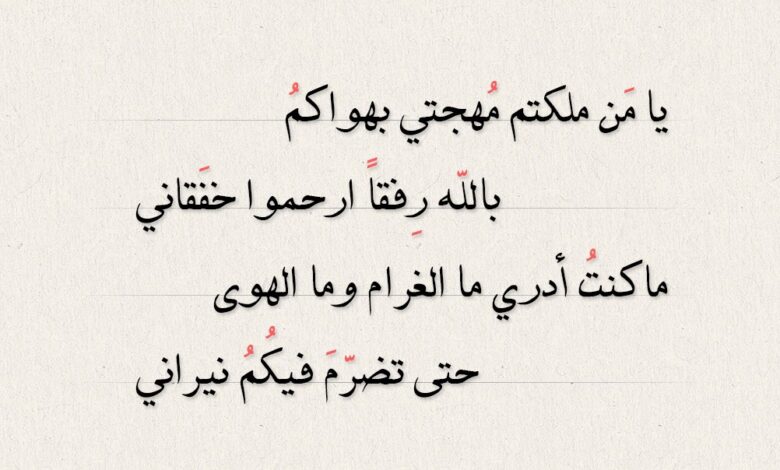 يا مَن ملكتم مُهجتي بهواكمُ
باللّه رِفقاً ارحموا خفَقاني
ماكنتُ أدري ما الغَرام وما الهوى
حتى تضرّمَ فيكُمُ نيراني